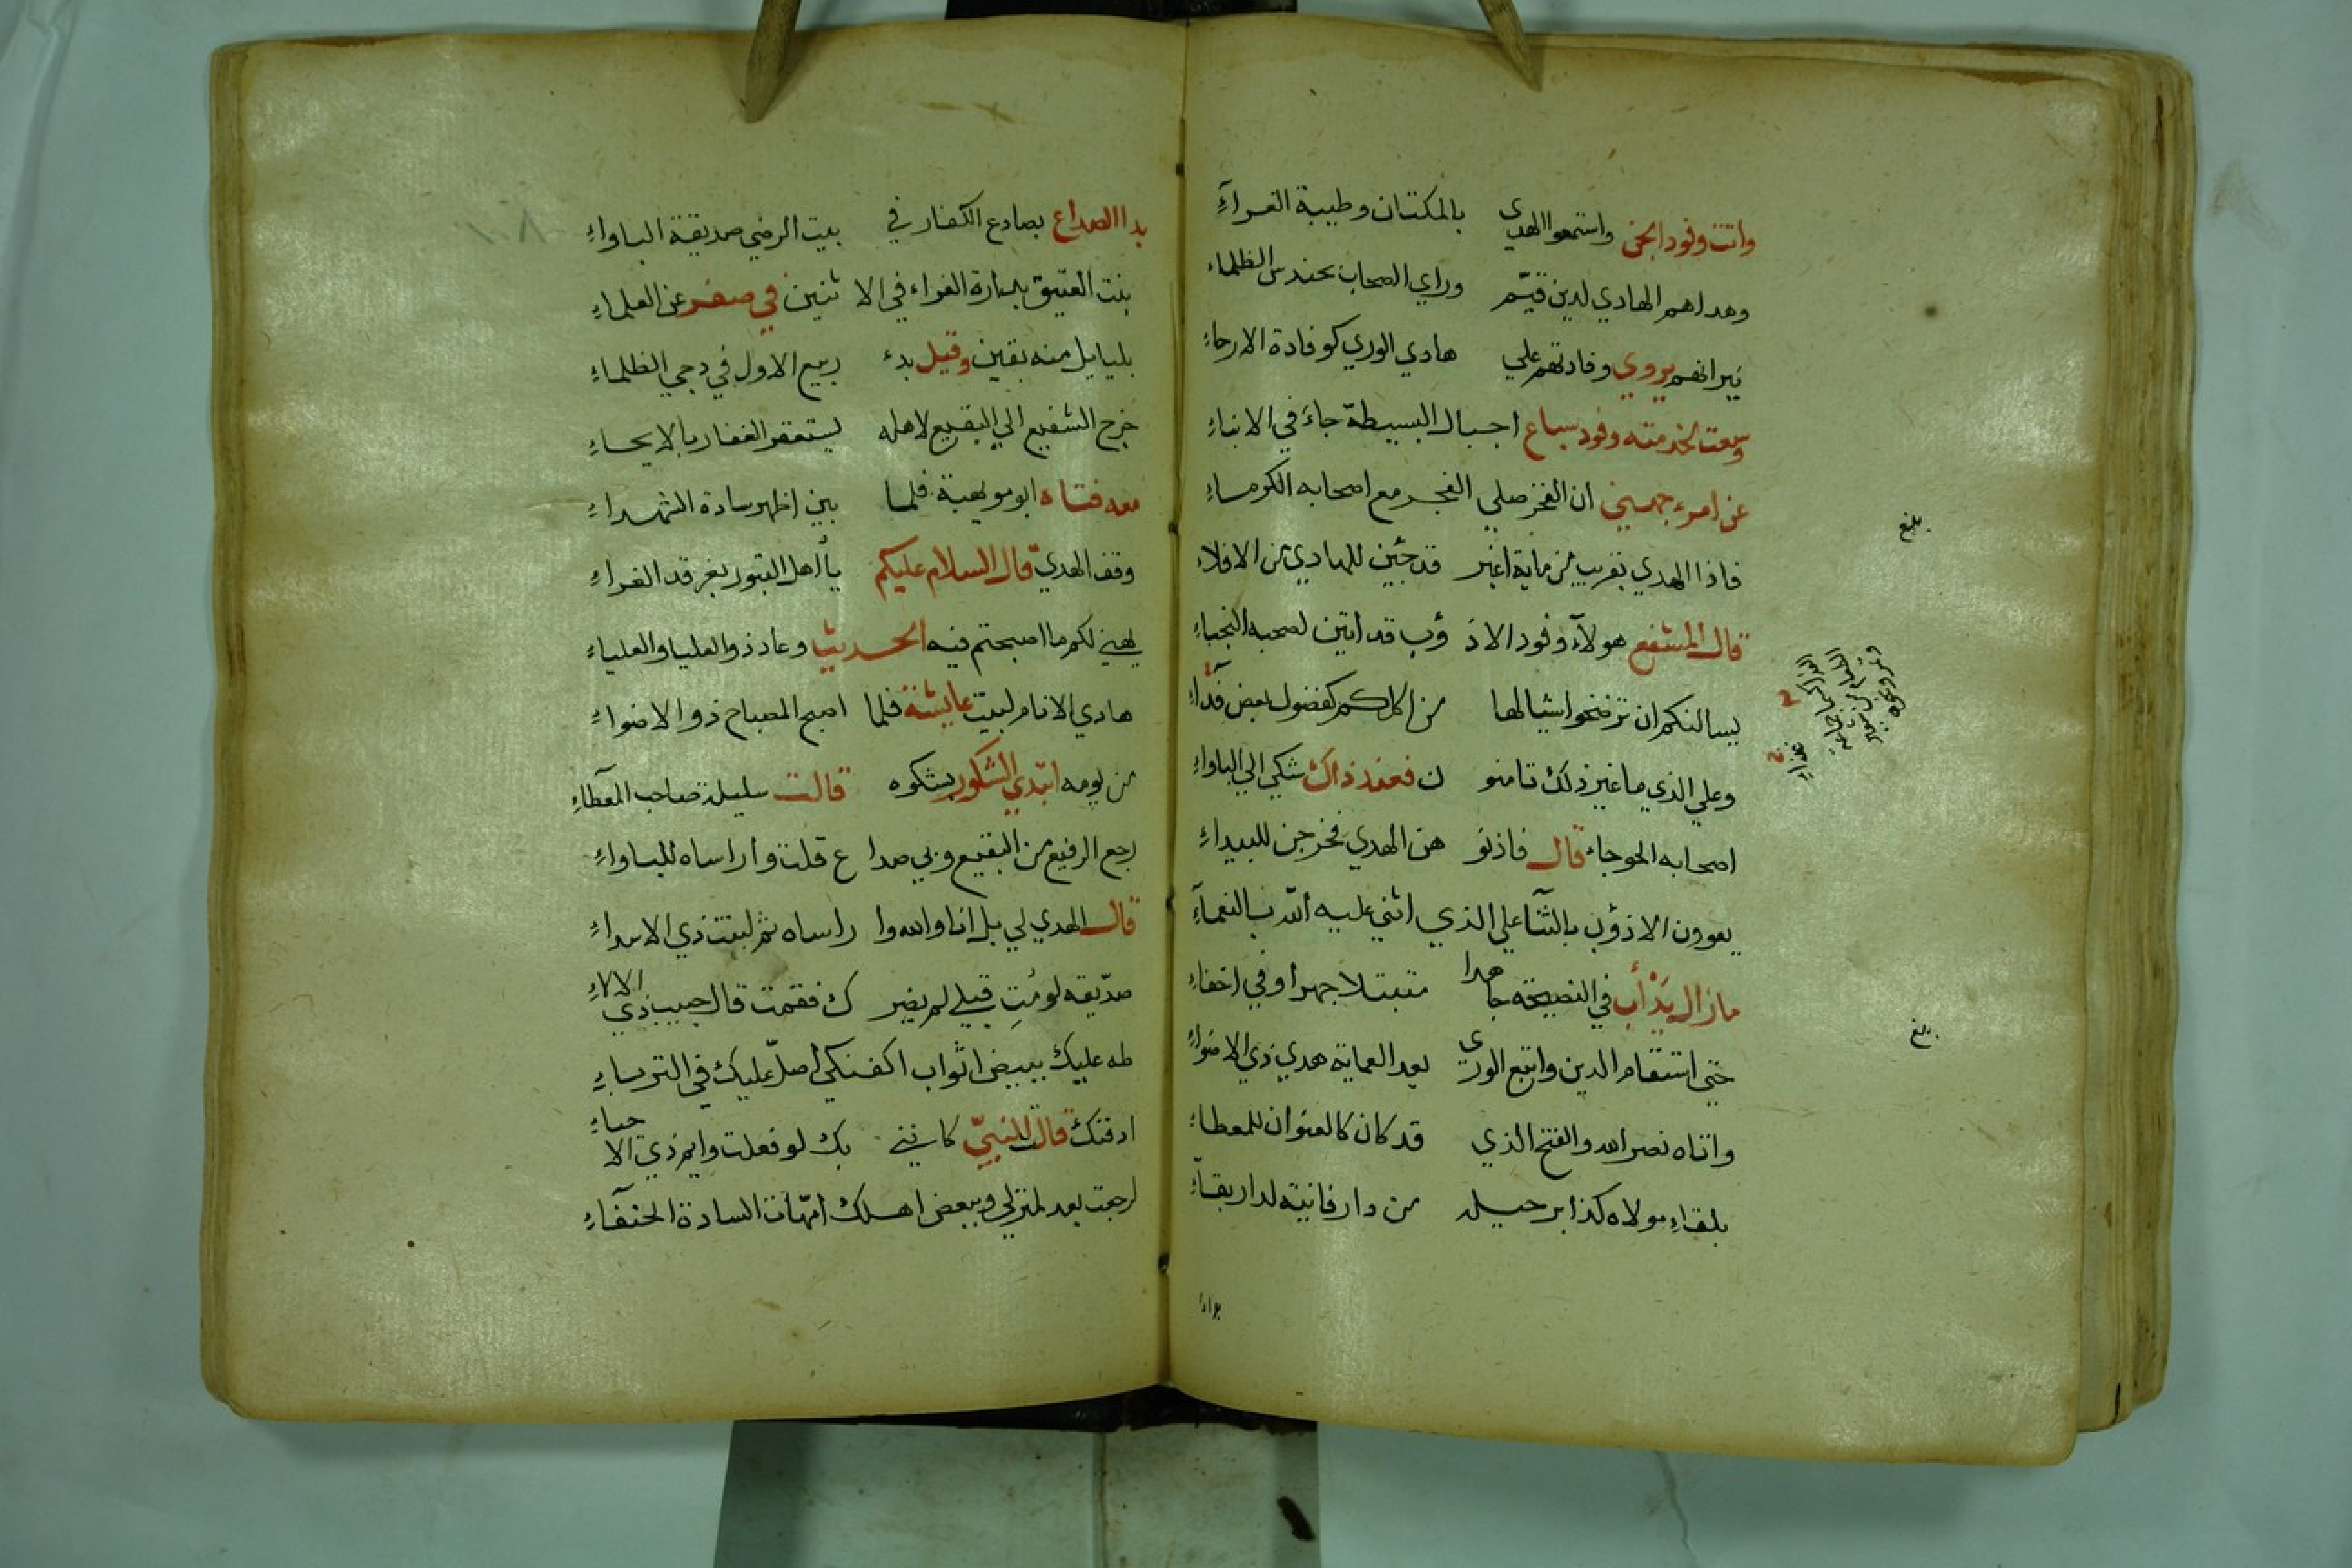 واتت وفود الجن واستمعوا الهدى بالمكتان وطيبة الغرآءِ
وهداهم الهادي لدين قيّم وراي الصحاب بحندس الظلماء
نيرانهم يروي وفادتهم علي هادي الوري كوفادة الارحاءِ
وسعت لخدمته وفود سباع اجبال البسيطة جاءَ في الانباءِ
عن امرء جهميني ان الفخر صلي الفجر مع اصحابه الكرماءِ
فاذا الهدي بقريب من ماية اغبر قد جئين للهادي من الافلاءِ
قال المشفع هولآء وفود الاذ ؤب قد اتين لصحبه النجباءِ
يسالنكم ان ترضخوا شيا لها من اكلكم كفضول بعض غداءِ
وعلي الذي ما غير ذلك تامنو ن فعند ذاك شكي الي الباواءِ
اصحابه الحوجاء قال فاذنو هن الهدي فخرجن للبيداءِ
يعوون الاذؤب بالثنا علي الذي اثني عليه الله بالنعمآءِ
مازال يَدْأب في النصيحة جاهدا متبتلا جهرا وفي اخفاءِ
حتي استقام الدين واتبع الورى بعد العماية هدي ذي الاضواءِ
واتاه نصر الله والفتح الذي قد كان كالعنوان للمعطاءِ
بلقاءِ مولاه كذا برحيله من دار فانية لدار بقآءِ
بلغ
بلغ
بدا
بدا الصداع بصادع الكفار في بيت الرضي صديقة الباواءِ
بنت العتيق بدارة الغراء في الا ثنين في صفر عن العلماءِ
بليايل منه بقين وقيل بدء ربيع الاول في دجي الظلماءِ
خرج الشفيع الي البقيع لاهله ليستغفر الغفار بالايحاءِ
معه فتاه ابو مويهبة فلما بين اظهر سادة الشهداءِ
وقف الهدي قال السلام عليكم يا أهل القبور بغرقد الغراءِ
ليهني لكم ما اصبحتم فيه الحديث وعاد ذو العليا والعلياءِ
هادي الانام لبيت عايشة فلما اصبح المصباح ذو الاضواءِ
من يومه ابتدي الشكور بشكوه قالت سليلة صاحب المعطاءِ
رجع الرفيع من البقيع وبي صدا ع قلت وا راساه للباواءِ
قال الهدي لي بل انا والله وا راساه ثم لبنت ذي الاسراءِ
صدّيقه لو مُتِ قبلي لم يضر ك فقمت قال حبيب ذي الالاءِ
طه عليك ببيض اثواب اكفنكي أصلّ عليك في الترباءِ
ادفنك قالت للنبيّ كانني بك لو فعلت وايم ذي الاحياءِ
لرجعت بعد لمنزلي وببعض اهلك امّهات السادة الحنفآءِ